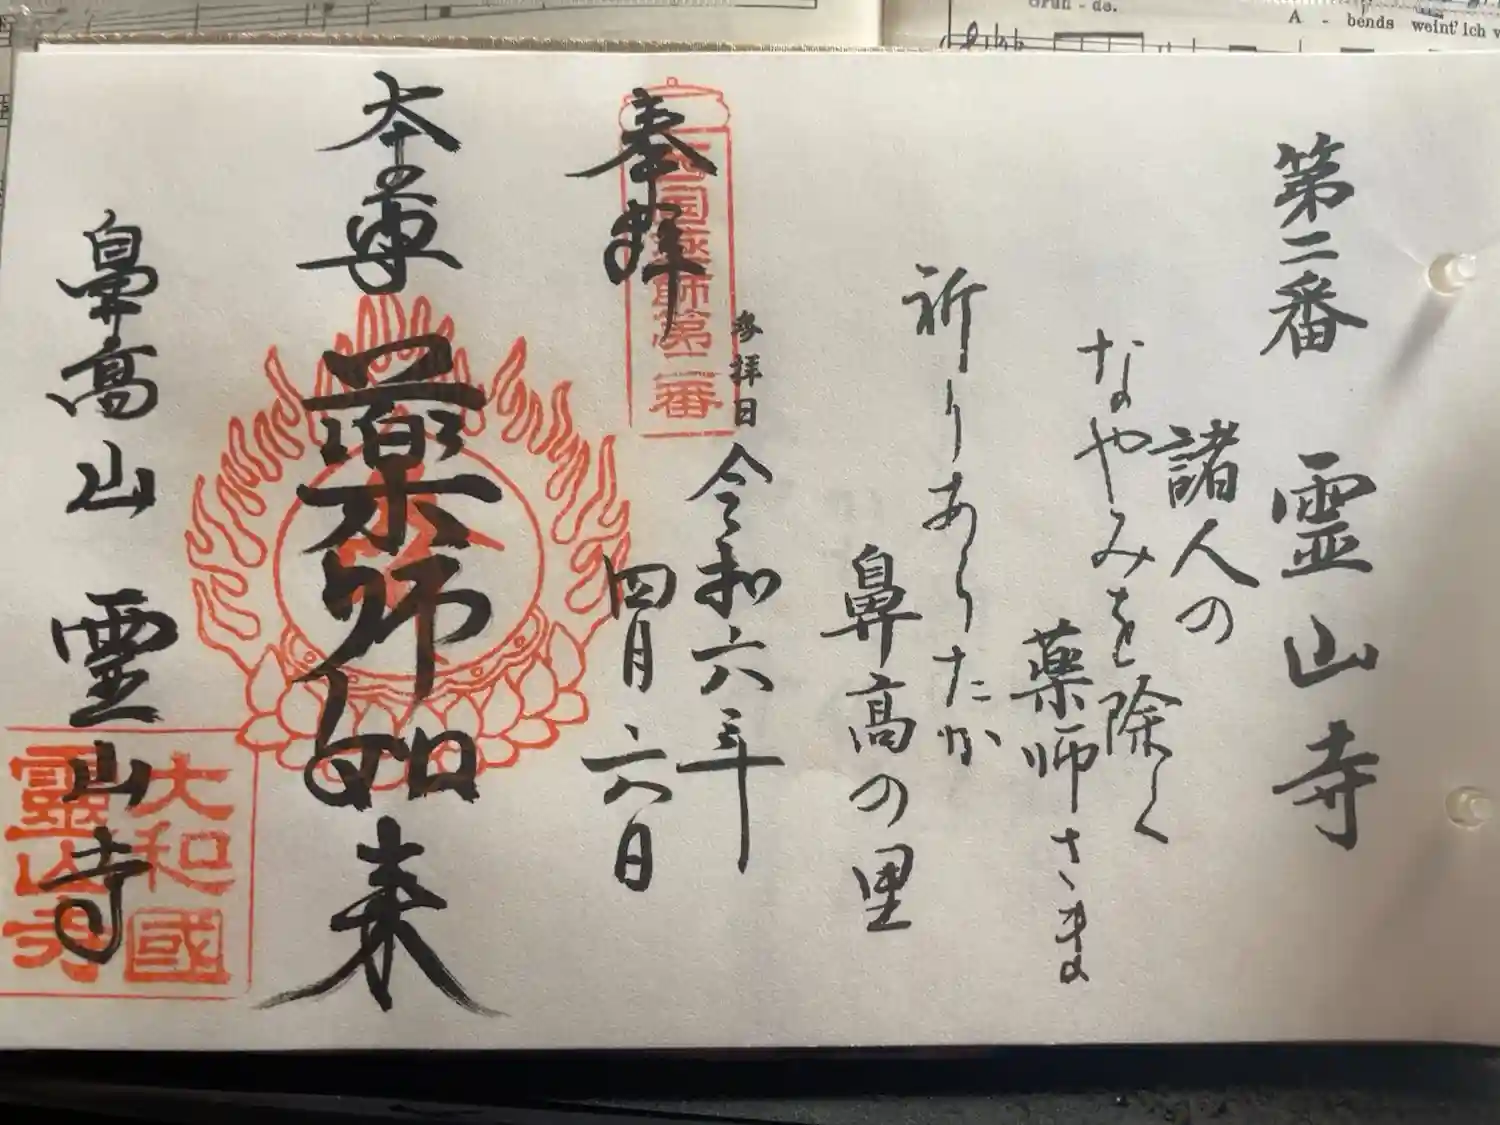 Grun - de.
A - bends weint' ich
第二番 霊山寺
諸人の
なやみを除く
薬師さま
祈りあらたか
鼻高の里
参拝日 令和六年
四月六日
奉拝
西国薬師第二番
本尊 薬師如来
鼻高山 霊山寺
大和國
靈山寺